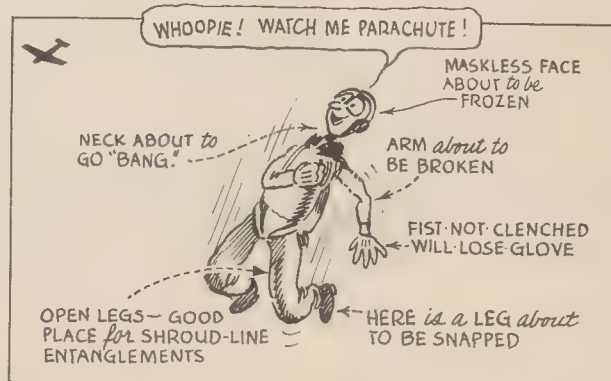 WHOOPIE! WATCH ME PARACHUTE!
MASKLESS FACE
ABOUT to be
FROZEN
NECK ABOUT to
GO "BANG."
ARM about to
BE BROKEN
FIST-NOT-CLENCHED
WILL-LOSE-GLOVE
OPEN LEGS- GOOD
PLACE for SHROUD-LINE
ENTANGLEMENTS
HERE is a LEG about
TO BE SNAPPED